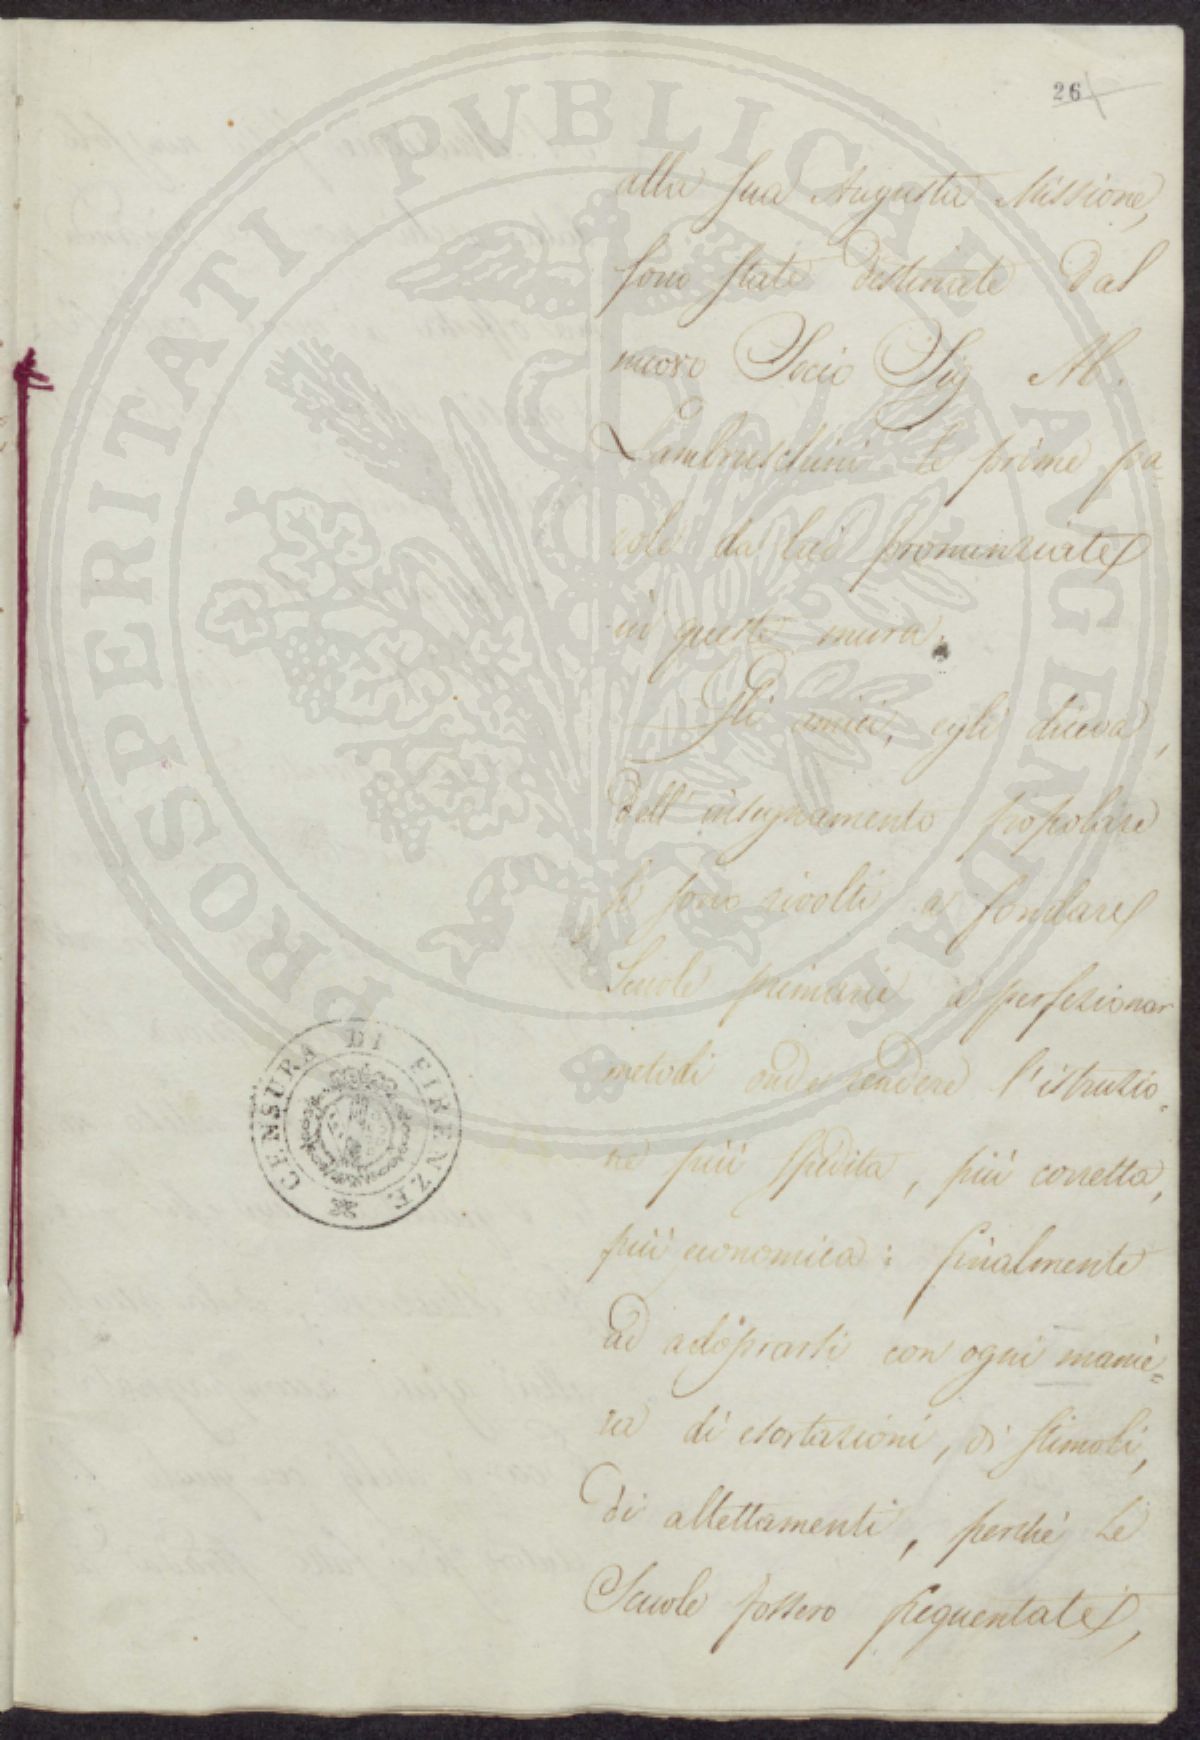 26
alla sua Augusta Missione,
sono state destinate dal
nuovo Socio Sig Ab.
Lambruschini le prime pa-
role da lui pronunziate
in queste mura.
Gli amici, egli diceva,
dell'insegnamento popolare
si sono rivolti a fondare
Scuole primarie a perfezionar
metodi onde rendere l'istruzio-
ne più spedita, più corretta,
più economica: finalmente
ad adoprarsi con ogni manie=
ra di esortazioni, di stimoli,
di allettamenti, perchè le
Scuole fossero frequentate,
CENSURA DI FIRENZE
PROSPERITATI PVBLICAE AVGENDAE